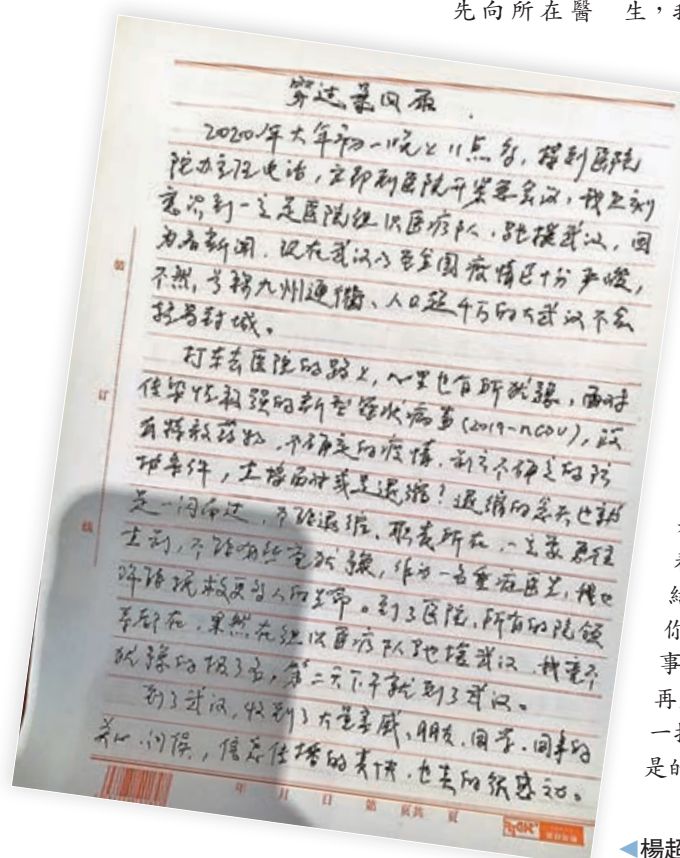 先向所在醫 生，我
穿过暴风雨
2020年大年初一晚上11点多，接到医院
院办主任电话，立即到医院开紧急会议，我立刻
意识到一定是医院组织医疗队，驰援武汉，因
为看新闻，现在武汉乃至全国疫情已十分严峻，
不然，号称九州通衢、人口超千万的大武汉不会
封城。
打车去医院的路上，心里也有所犹豫，面对
传染性极强的新型冠状病毒(2019-nCOV)，没
有特效药物，不确定的疫情，到了不确定的防
护条件，选择面对或是退缩？退缩的念头也就
是一闪而过，不能退缩，职责所在，一定要勇往
直前，不能有丝毫犹豫，作为一名重症医生，
能挽救更多人的生命。到了医院，所有的院领
导都在，果然在组织医疗队驰援武汉，我毫不
犹豫的报了名，第二天下午就到了武汉。
到了武汉，收到了大量亲戚、朋友、同学、同事的
关心、问候，信息传播的真快，也真的很感动。
装
订
线
年 月 日 第 页共 页
結
你
事
再
一
是的
◀楊超